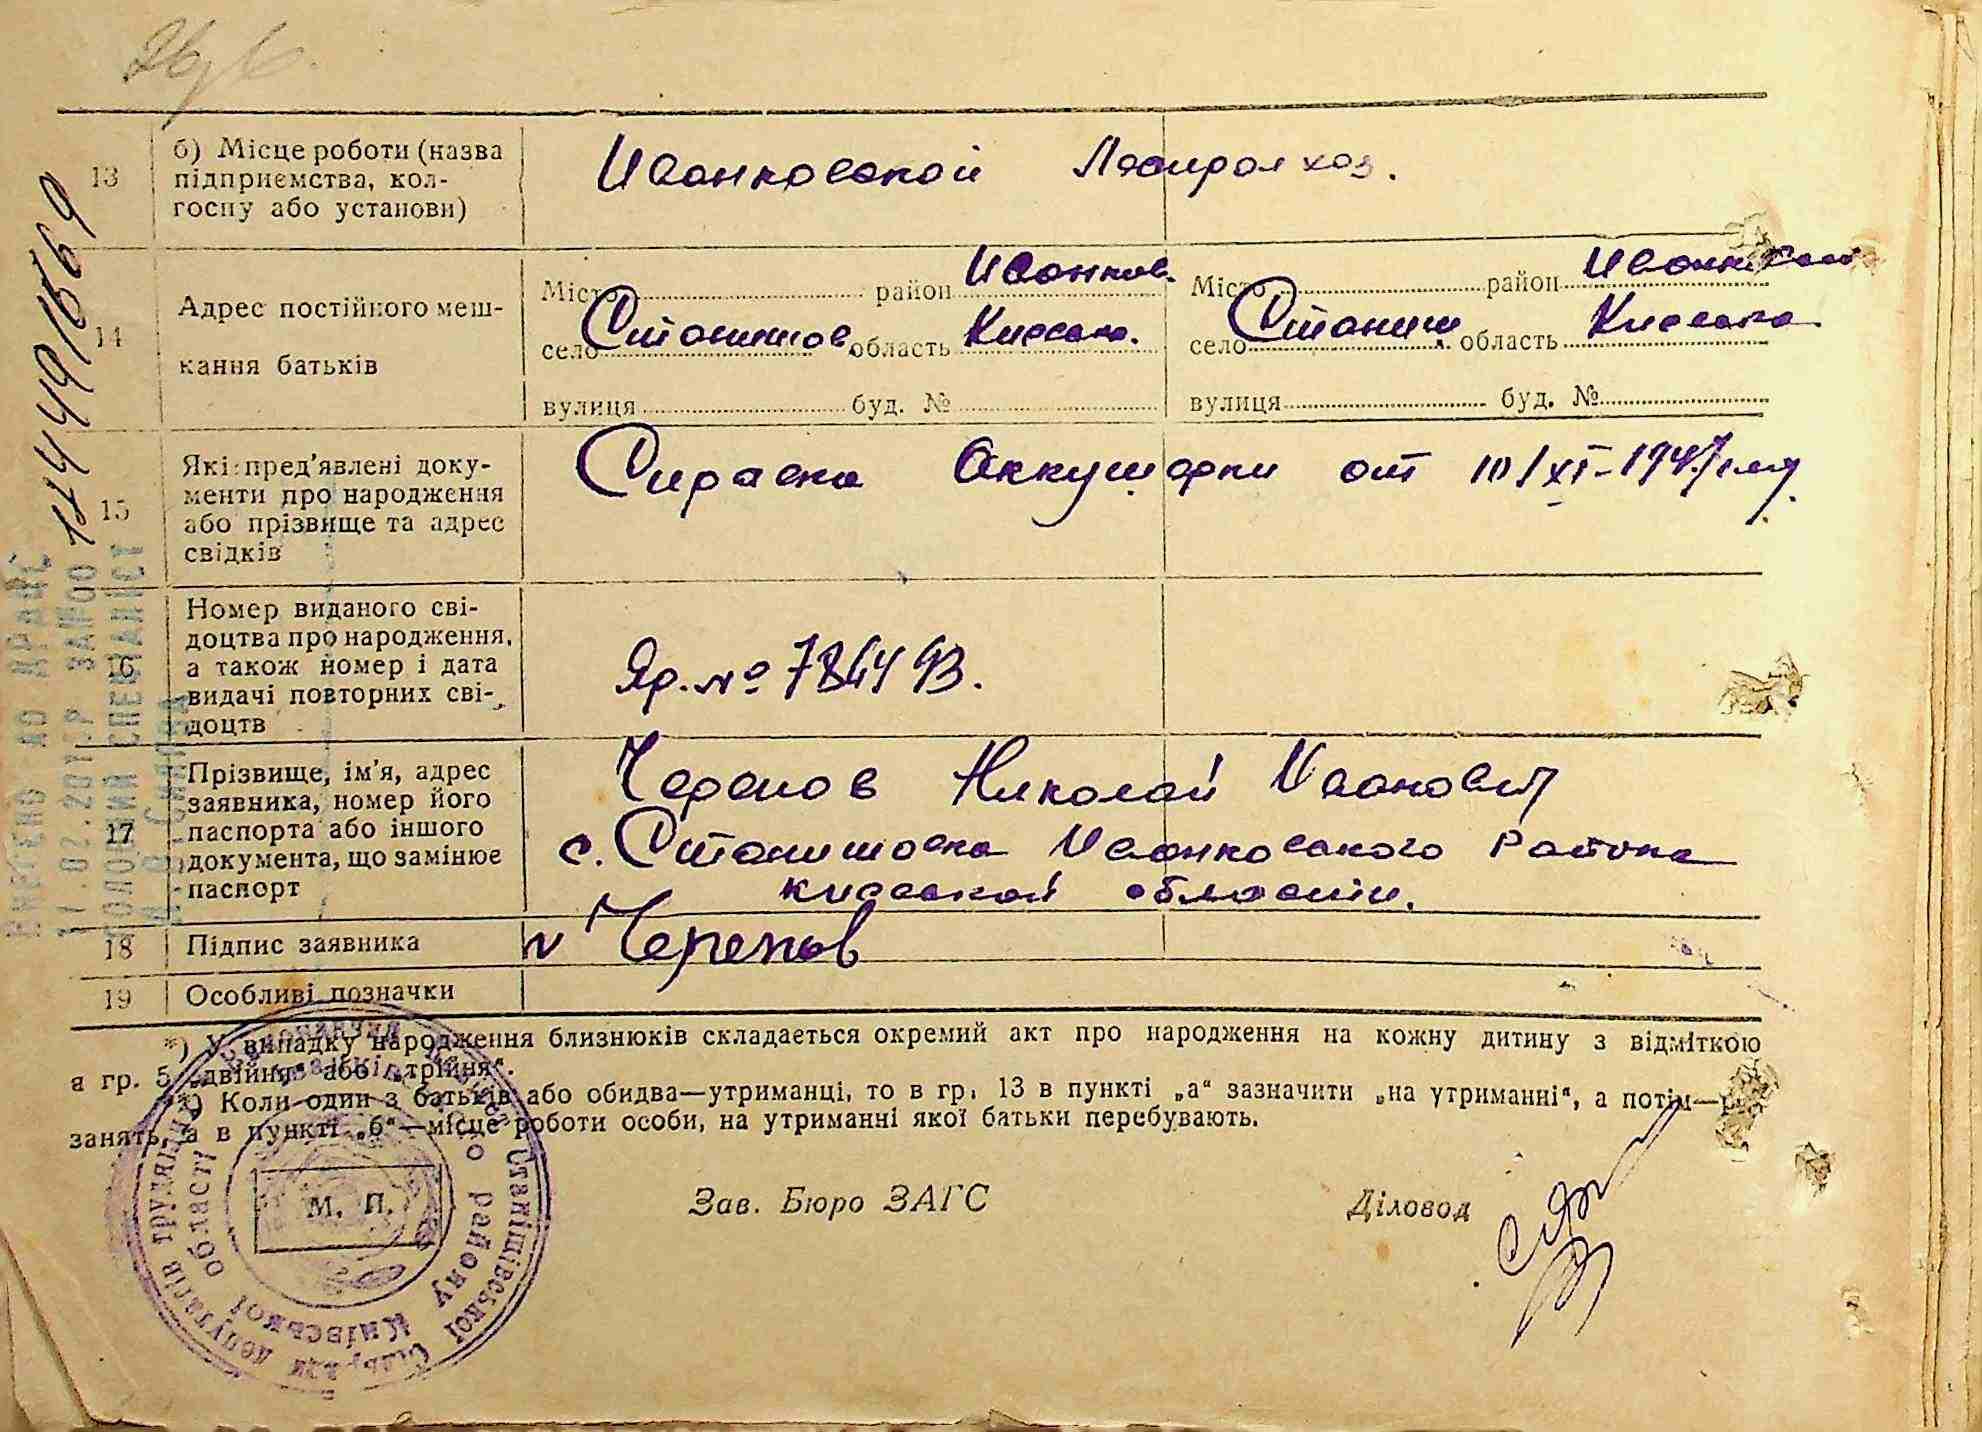 13 б) Місце роботи (назва
підприємства, кол-
госпу або установи)
Иванковской
14 Адрес постійного меш-
кання батьків
Місто район Иванков.
село Станишов область Киевска.
вулиця буд. №
Місто район Иванковский
село Станиш. область Киевска
вулиця буд. №
15 Які пред'явлені доку-
менти про народження
або прізвище та адрес
свідків
Справка Аккушерки от 10/XI-1947
16 Номер виданого сві-
доцтва про народження,
а також номер і дата
видачі повторних сві-
доцтв
№ 784493.
17 Прізвище, ім'я, адрес
заявника, номер його
паспорта або іншого
документа, що замінює
паспорт
Черепов Николай Иванович
с. Станишовка Иванковского района
киевской области.
18 Підпис заявника
Черепов
19 Особливі позначки
*) У випадку народження близнюків складається окремий акт про народження на кожну дитину з відміткою
в гр. 5 „двійня" або „трійня".
Коли один з батьків або обидва—утриманці, то в гр. 13 в пункті „а" зазначити „на утриманні", а потім—
занять, а в пункті „б"—місце роботи особи, на утриманні якої батьки перебувають.
М. П.
Зав. Бюро ЗАГС
Діловод
Станішівської Сільради депутатів трудящих
району Київської області
ВНЕСЕНО ДО ДРАЦС
ГОЛОВНИЙ СПЕЦІАЛІСТ